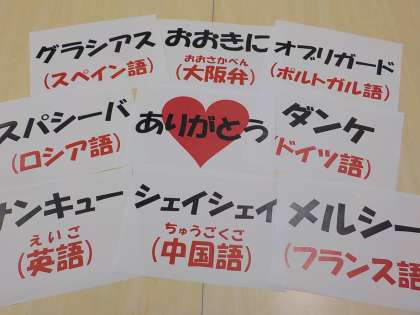 グラシアス
(スペイン語)
おおきに
おおさかべん
(大阪弁)
オブリガード
(ポルトガル語)
スパシーバ
(ロシア語)
ありがとう
ダンケ
(ドイツ語)
サンキュー
えいご
(英語)
シェイシェイ
ちゅうごくご
(中国語)
メルシー
(フランス語